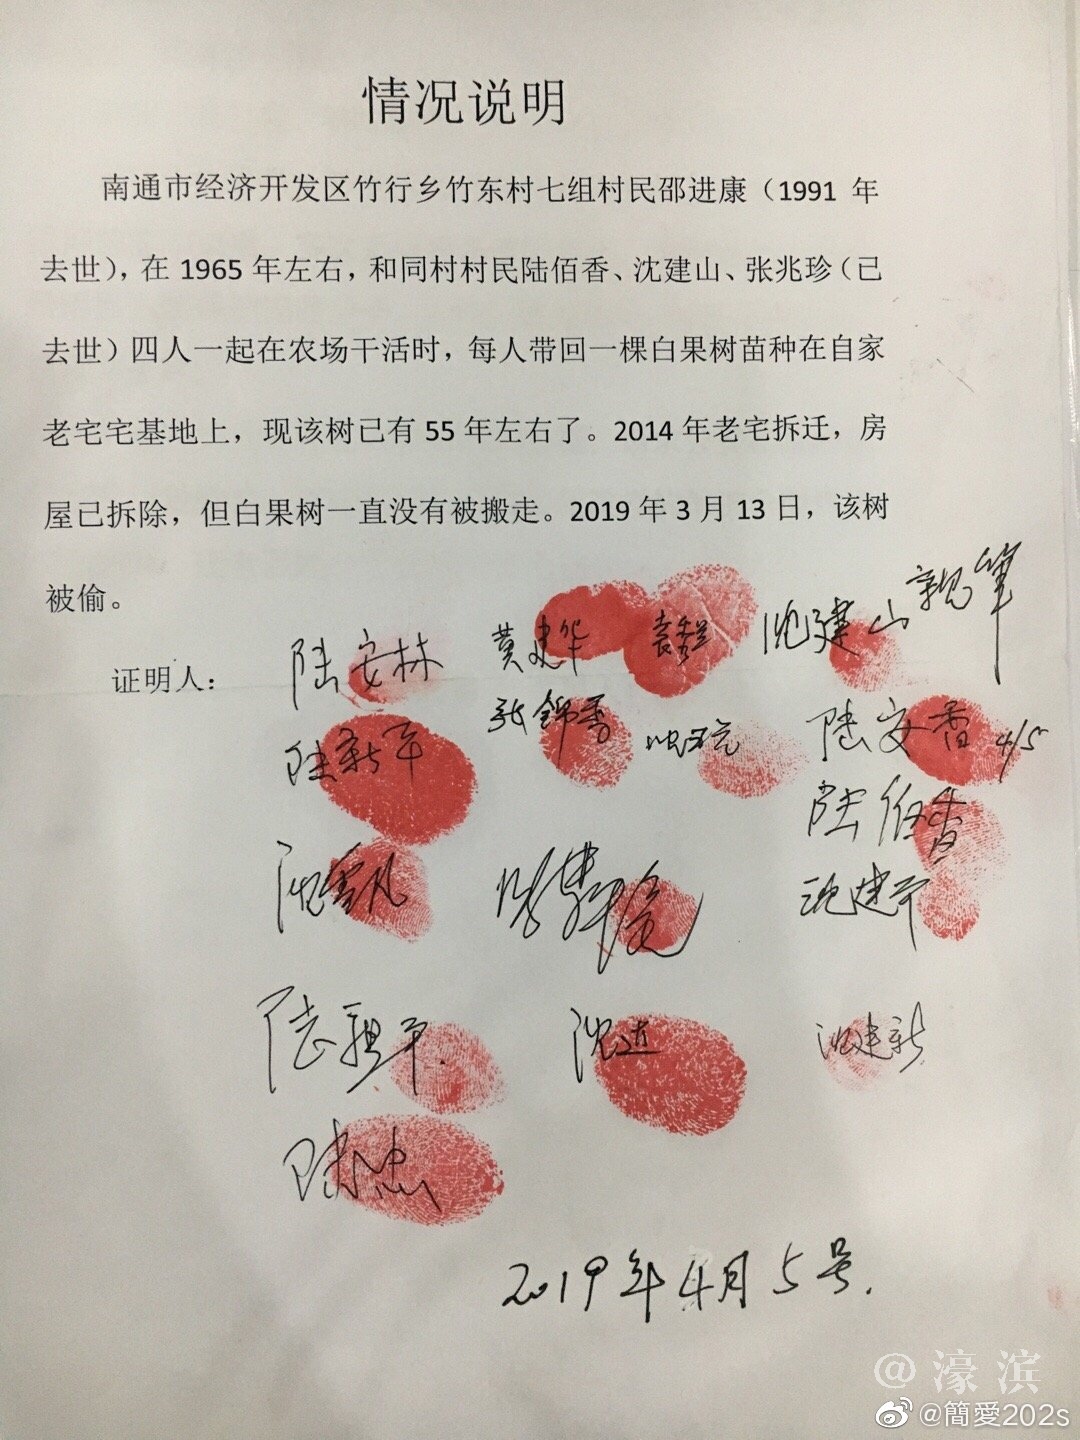 情况说明
南通市经济开发区竹行乡竹东村七组村民邵进康（1991 年
去世），在 1965 年左右，和同村村民陆佰香、沈建山、张兆珍（已
去世）四人一起在农场干活时，每人带回一棵白果树苗种在自家
老宅宅基地上，现该树已有 55 年左右了。2014 年老宅拆迁，房
屋已拆除，但白果树一直没有被搬走。2019 年 3 月 13 日，该树
被偷。
证明人：
陆安林 黄建华 袁秀兰 沈建山 親笔
陆新平 张锦香 陆安香 4/5
陆佰香
沈雲凡 沈建平
沈进 沈建新
陆忠
2019年4月5号.
@濠滨
@簡愛202s